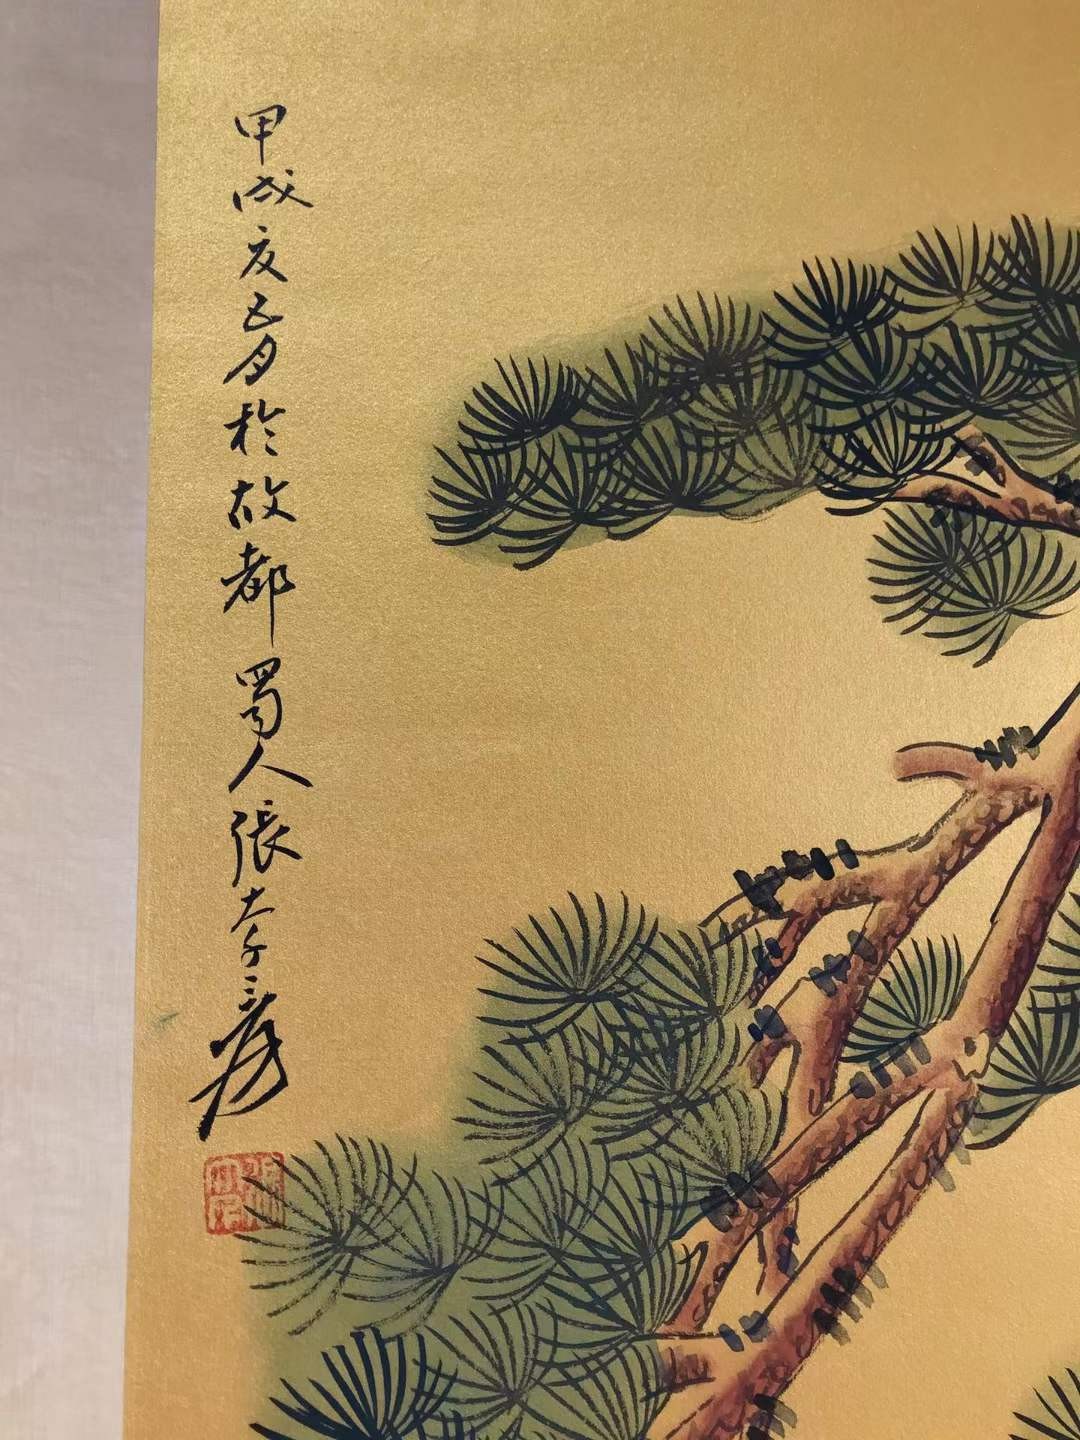 甲戌夏五月於故都蜀人張大千爰